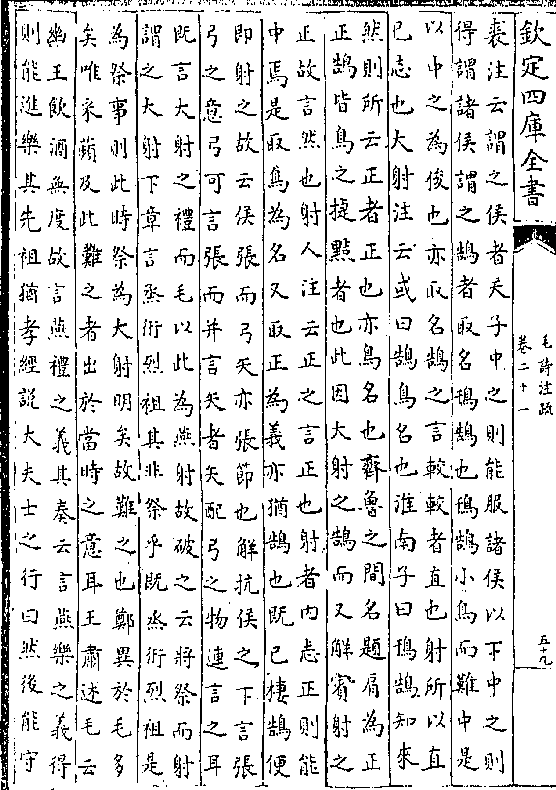 欽定四庫全書
毛詩注疏
卷二十一
五十九
裘注云謂之侯者天子中之則能服諸侯以下中之則
得謂諸侯謂之鵠者取名鳱鵠也鳱鵠小鳥而難中是
以中之為俊也亦取名鵠之言較較者直也射所以直
已志也大射注云或曰鵠鳥名也淮南子曰鳱鵠知來
然則所云正者正也亦鳥名也齊魯之間名題肩為正
正鵠皆鳥之捷黠者也此因大射之鵠而又解賓射之
正故言然也射人注云正之言正也射者内志正則能
中焉是取鳥為名又取正為義亦猶鵠也既已棲鵠便
即射之故云侯張而弓矢亦張節也解抗侯之下言張
弓之意弓可言張而并言矢者矢配弓之物連言之耳
既言大射之禮而毛以此為燕射故破之云將祭而射
謂之大射下章言烝衎烈祖其非祭乎既烝衎烈祖是
為祭事則此時祭為大射明矣故難之也鄭異於毛多
矣唯采蘋及此難之者出於當時之意耳王肅述毛云
幽王飲酒無度故言燕禮之義其奏云言燕樂之義得
則能進樂其先祖猶孝經説大夫士之行曰然後能守